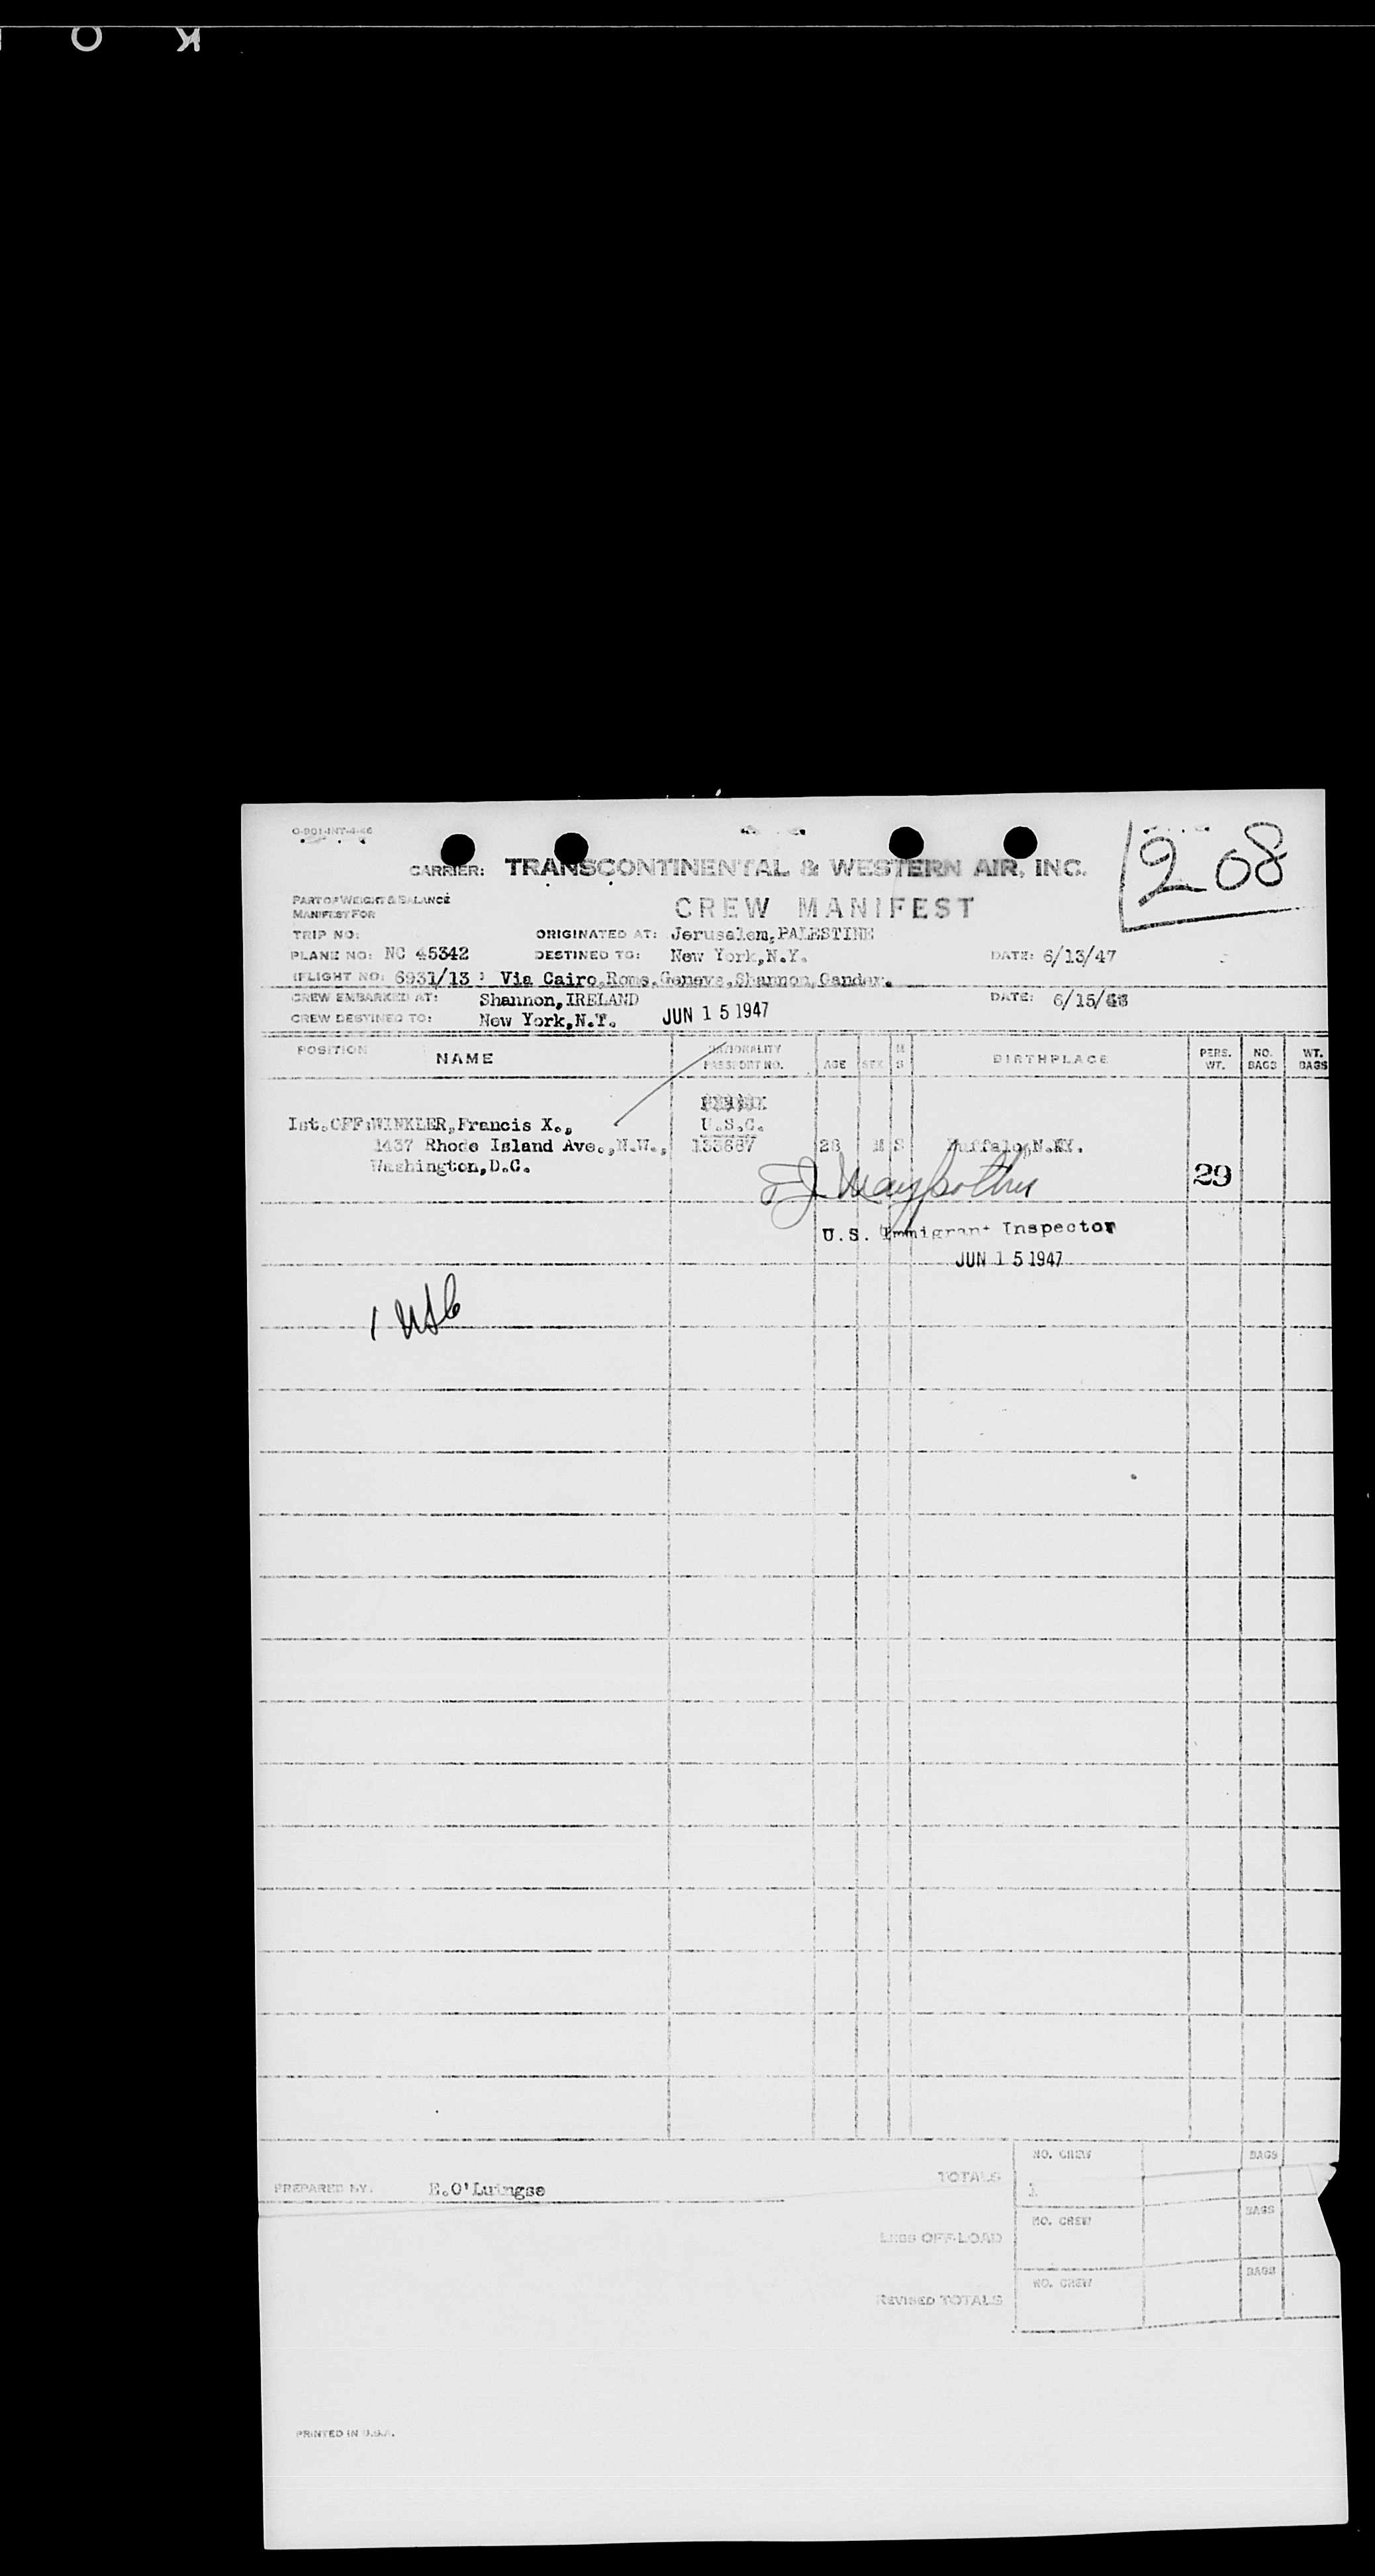 K O
O-901-INT-4-46
208
CARRIER: TRANSCONTINENTAL & WESTERN AIR, INC.
PART OF WEIGHT & BALANCE
MANIFEST FOR
CREW MANIFEST
TRIP NO: ORIGINATED AT: Jerusalem,PALESTINE
PLANE NO: NC 45342 DESTINED TO: New York,N.Y. DATE: 6/13/47
(FLIGHT NO: 6931/13 : Via Cairo,Rome,Geneva,Shannon,Gander.
CREW EMBARKED AT: Shannon,IRELAND DATE: 6/15/
CREW DESTINED TO: New York,N.Y. JUN 15 1947
POSITION NAME NATIONALITY PASSPORT NO. AGE SEX M S BIRTHPLACE PERS. WT. NO. BAGS WT. BAGS
Ist.OFF:WINKLER,Francis X., U.S.C.
1437 Rhode Island Ave.,N.W., 133687 28 M S Buffalo,N.Y.
Washington,D.C.
29
U.S. Immigrant Inspector
JUN 15 1947
1 USC
NO. CREW BAGS
TOTALS 1
PREPARED BY:
NO. CREW BAGS
LESS OFF-LOAD
NO. CREW BAGS
REVISED TOTALS
PRINTED IN U.S.A.